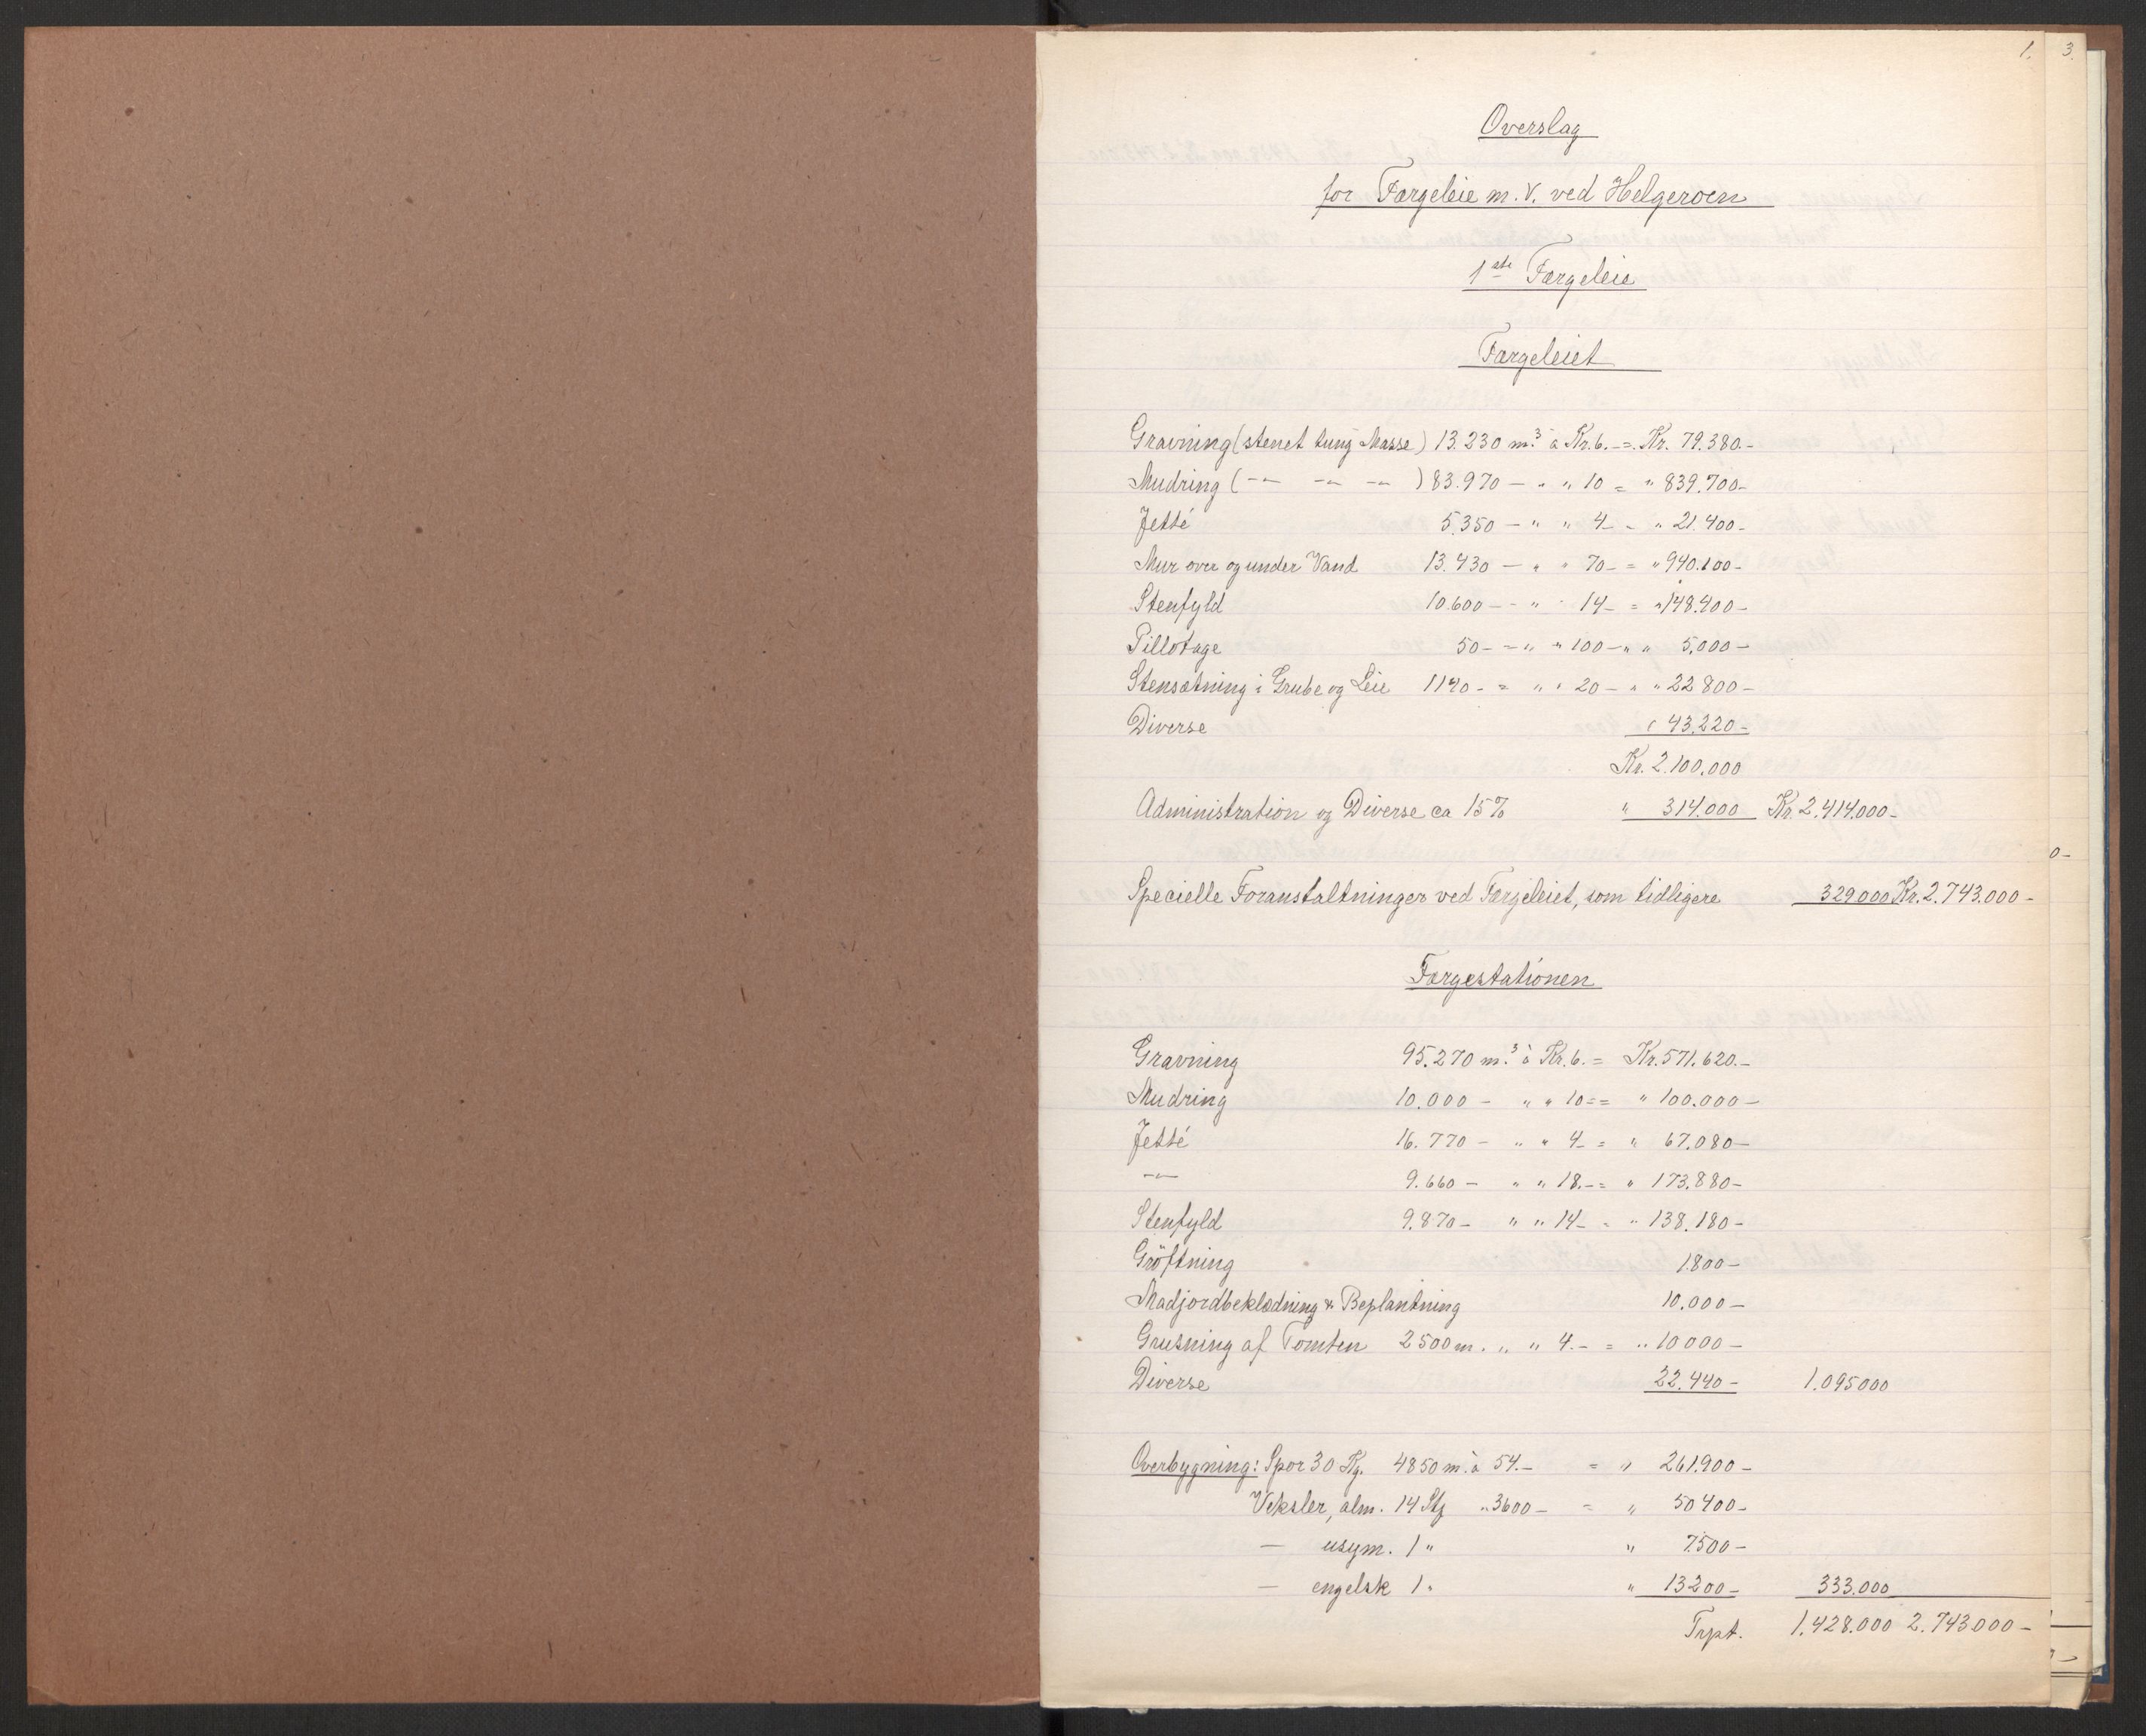 1. 3.
Overslag
for Færgeleie m.v. ved Helgeroen
1ste Færgeleie
Færgeleiet
Gravning (stenet tung Masse) 13.230 m.3 à Kr. 6.- = Kr. 79.380.-
Mudring ( -"- -"- -"- ) 83.970 - " " 10 = " 839.700-
Jetté 5.350 - " " 4- " " 21.400-
Mur over og under Vand 13.430 - " " 70- = " 940.100-
Stenfyld 10.600 - - " " 14- = " 148.400-
Pillotage 50 - - " " 100 - " " 5.000-
Stensætning i Grube og Leie 1140 - = " " 20 - " " 22800-
Diverse " 43.220-
Kr. 2.100.000
Administration og Diverse ca 15% " 314.000 Kr. 2.414.000-
0-
Specielle Foranstaltninger ved Færgeleiet, som tidligere 329.000 Kr. 2.743.000-
Færgestationen
Gravning 95.270 m.3 à Kr. 6. = Kr. 571.620.-
Mudring 10.000 - " " 10 = = " 100.000-
Jetté 16.770 - " " 4- = " 67.080-
-"- 9.660 - " " 18.- = " 173.880-
Stenfyld 9.870 - " " 14- = " 138.180-
Gröftning 1.800-
Madjordbeklædning & Beplantning 10.000-
Grusning af Tomten 2500 m. " " 4.- = " 10000-
Diverse 22.440- 1.095000
Overbygning: Spor 30 Kg. 4850 m. à 54.- = " 261.900-
Veksler, alm. 14 Stk " 3600- = " 50400-
- usym. 1 " " 7500-
- engelsk 1 " " 13200- 333.000
Trpt. 1.428.000 2.743000-